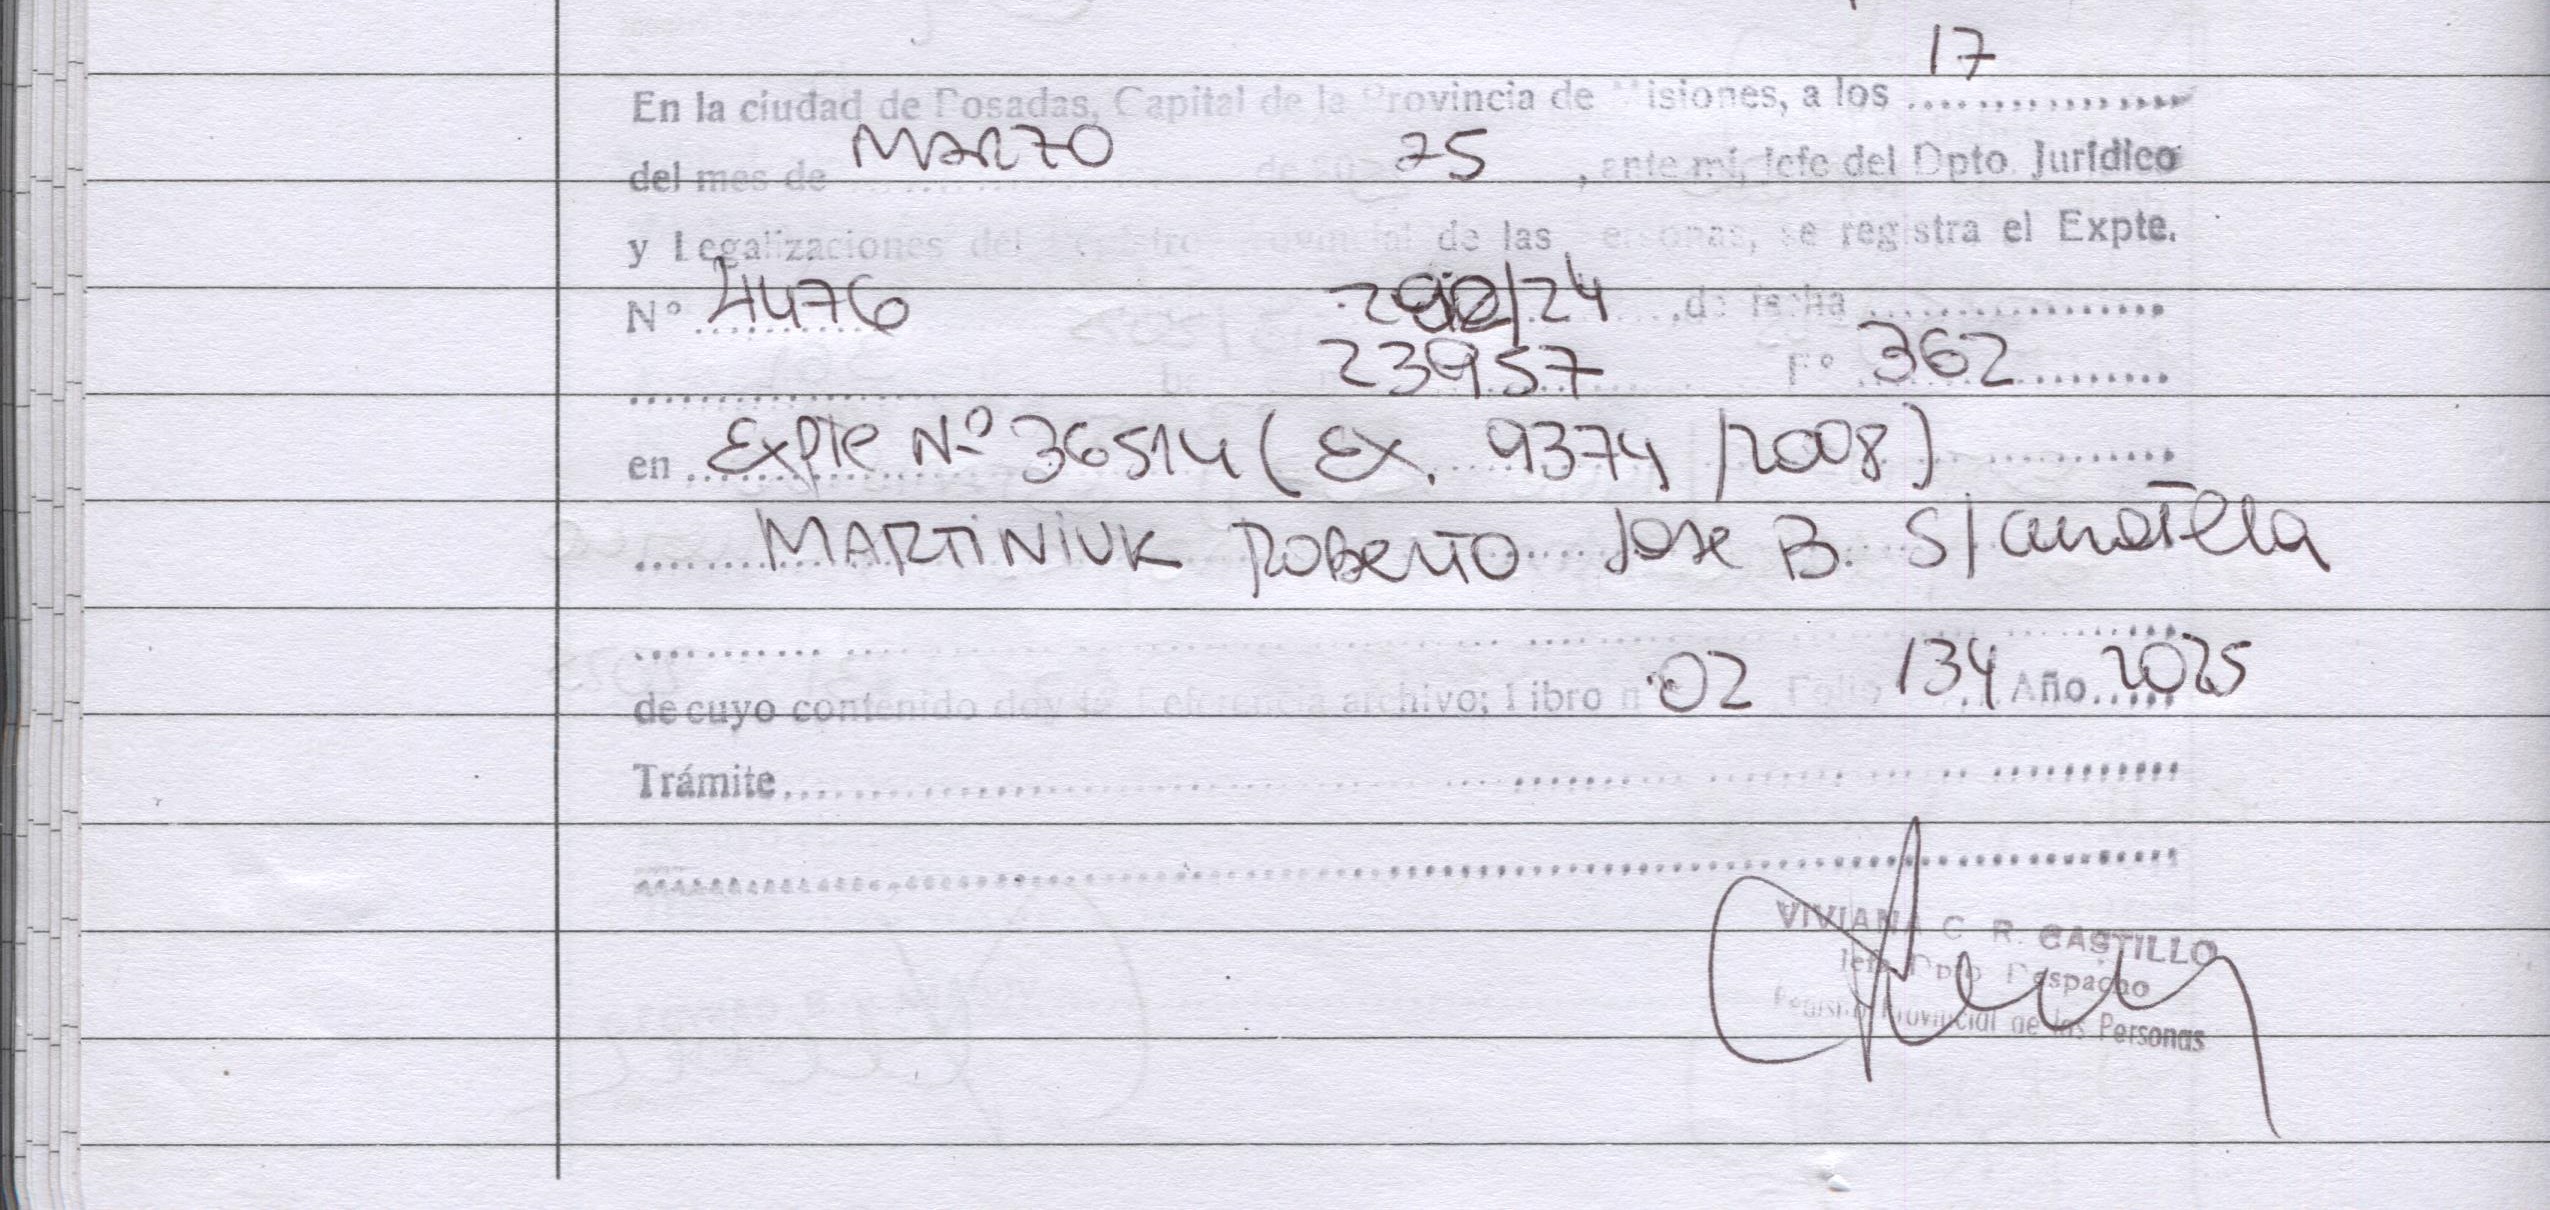 17
En la ciudad de Posadas, Capital de la Provincia de Misiones, a los ................
del mes de MARZO de 20 25, ante mi, Jefe del Dpto. Jurídico
y Legalizaciones del Registro Provincial de las Personas, se registra el Expte.
N° 4476 /24 de fecha ................
23957 F° 362
en Expte Nº 36514 (Ex. 9374 /2008)
MARTINIUK Roberto Jose B. S/ curatela
de cuyo contenido doy fe. Referencia archivo; Libro n° 02 Folio 134 Año 2025
Trámite................
VIVIANA C. R. CASTILLO
Jefe Dpto. Despacho
Registro Provincial de las Personas